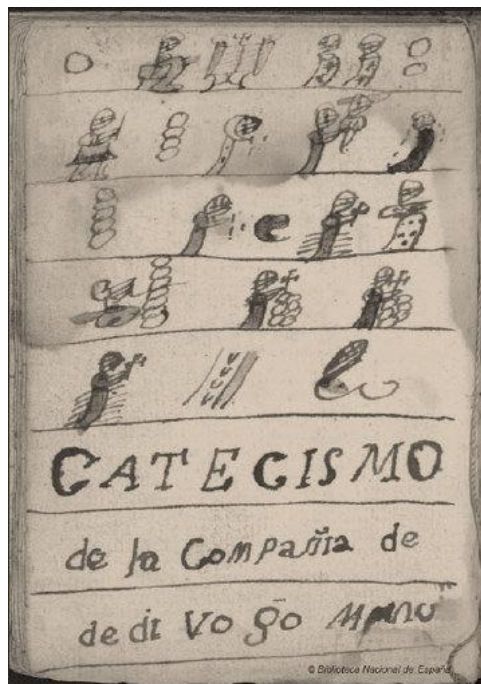 CATECISMO
de la Compañia de
de di vo go
© Biblioteca Nacional de España